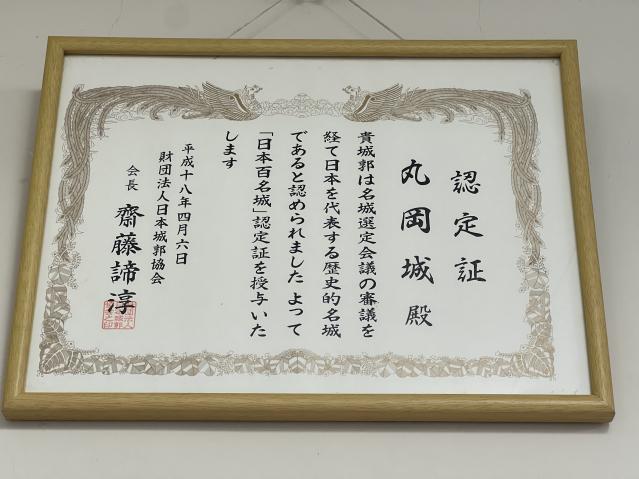 認定証
丸岡城殿
貴城郭は名城選定会議の審議を
経て日本を代表する歴史的名城
であると認められました よって
「日本百名城」認定証を授与いた
します
平成十八年四月六日
財団法人日本城郭協会
会長 齋藤諦淳